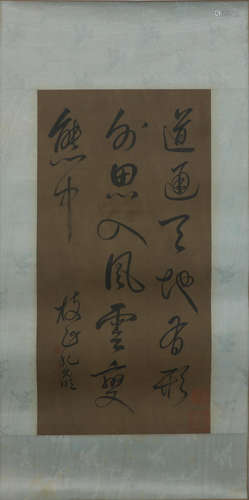 道通天地有形
外思入風雲變
態中
枝山允明